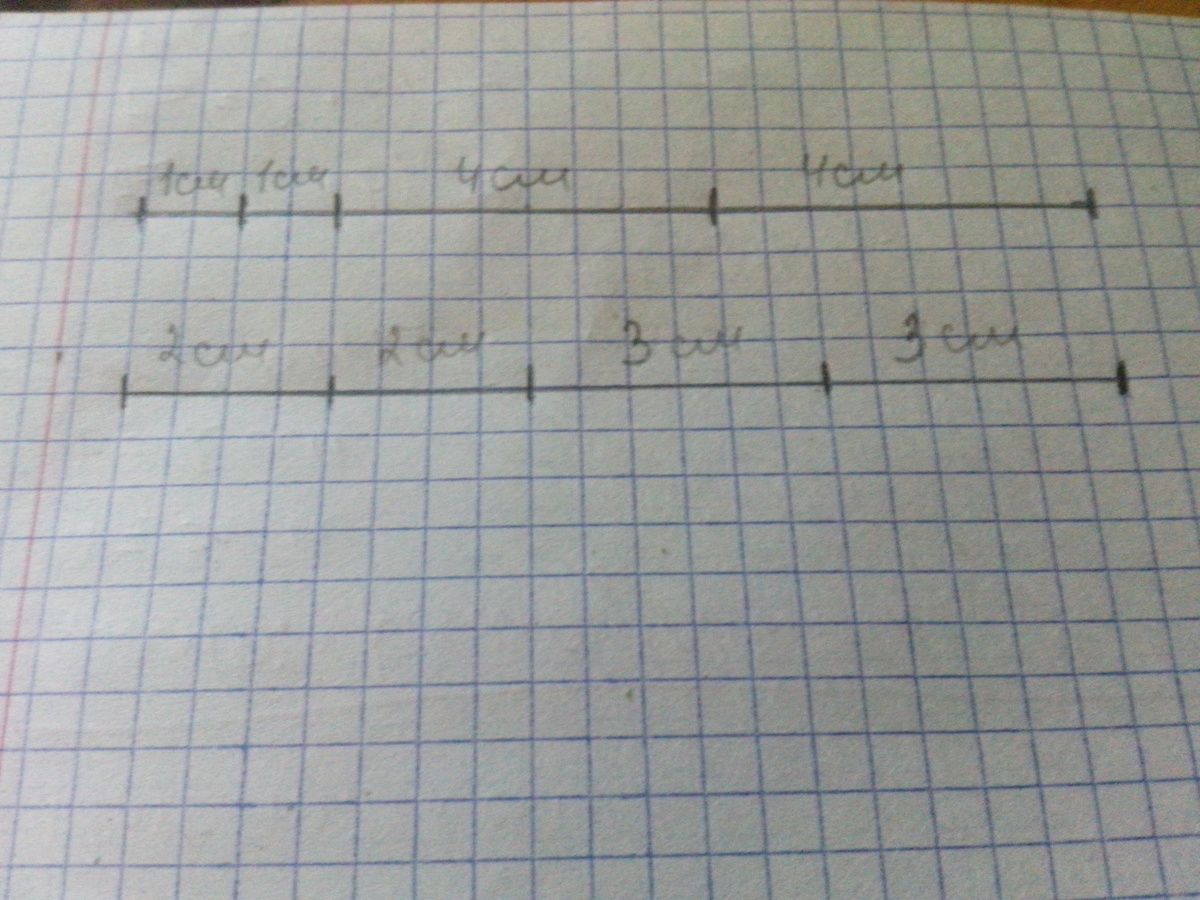 1см 1см 4см 4см
2см 2см 3см 3см